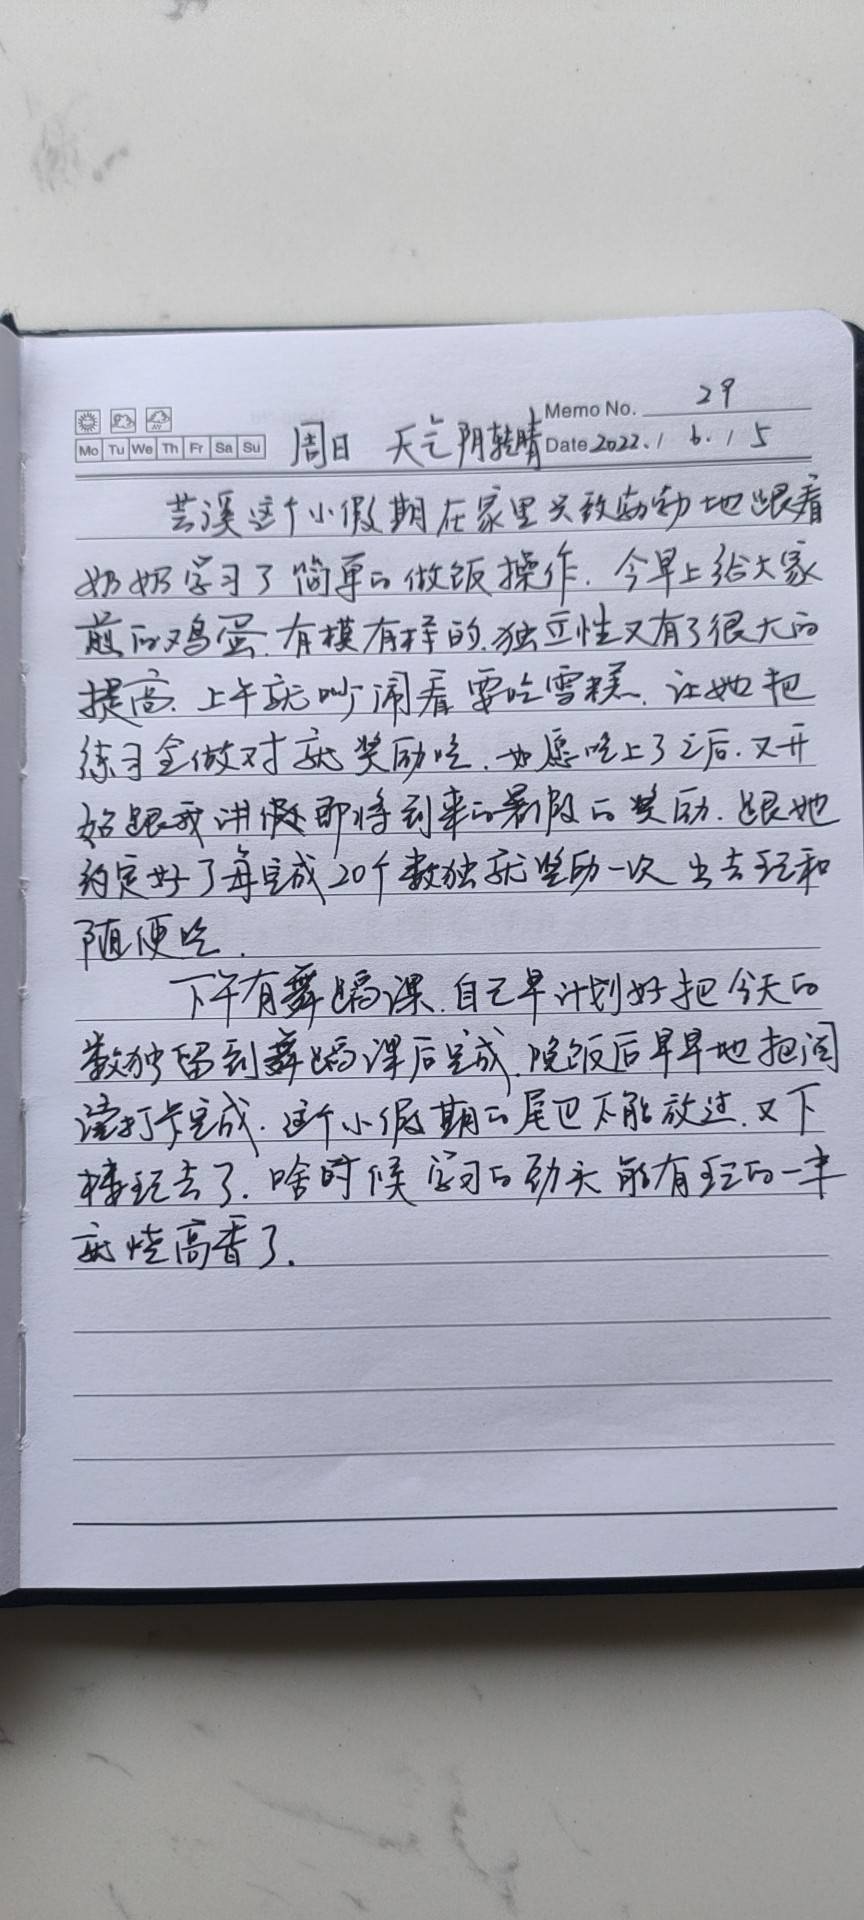 Memo No. 29
Mo Tu We Th Fr Sa Su 周日 天气阴转晴 Date 2022.1 6.15
芸溪这个小假期在家里兴致勃勃地跟着
奶奶学习了简单的做饭操作.今早上给大家
煎的鸡蛋.有模有样的.独立性又有了很大的
提高.上午就吵闹着要吃雪糕.让她把
练习全做对就奖励吃.如愿吃上了之后.又开
始跟我讲假即将到来的暑假的奖励.跟她
约定好了每完成20个数独就奖励一次出去玩和
随便吃.
下午有舞蹈课.自己早计划好把今天的
数独留到舞蹈课后完成.晚饭后早早地把阅
读打卡完成.这个小假期的尾巴不能放过.又下
楼玩去了.啥时候学习的劲头能有玩的一半
就烧高香了.